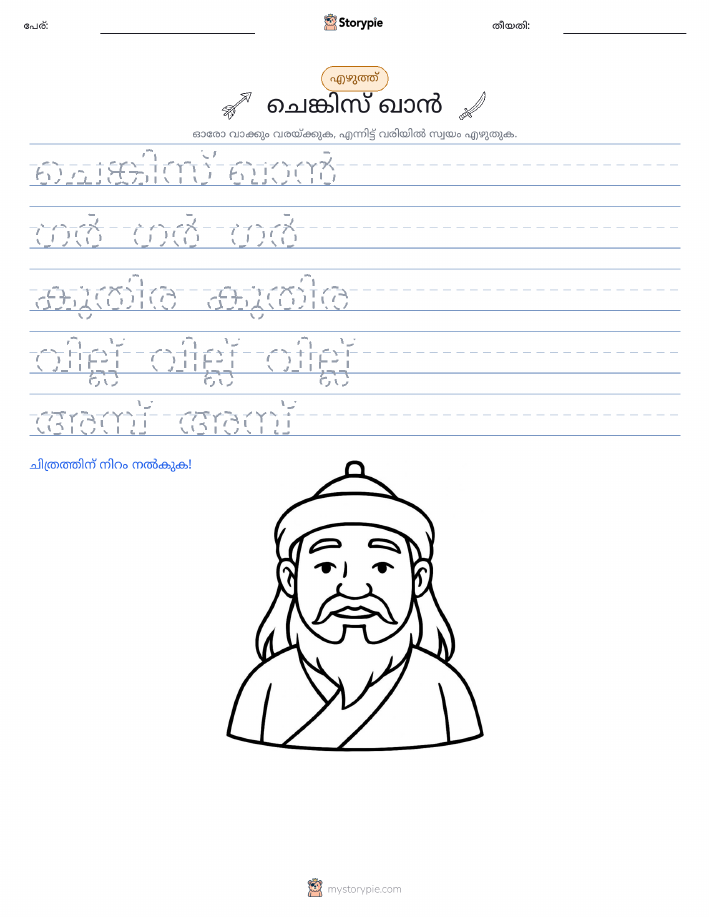 പേര്:
Storypie
തീയതി:
എഴുത്ത്
ചെങ്കിസ് ഖാൻ
ഓരോ വാക്കും വരയ്ക്കുക, എന്നിട്ട് വരിയിൽ സ്വയം എഴുതുക.
ചെങ്കിസ് ഖാൻ
ഗർ ഗർ ഗർ
കുതിര കുതിര
വില്ല് വില്ല് വില്ല്
അമ്പ് അമ്പ്
ചിത്രത്തിന് നിറം നൽകുക!
mystorypie.com